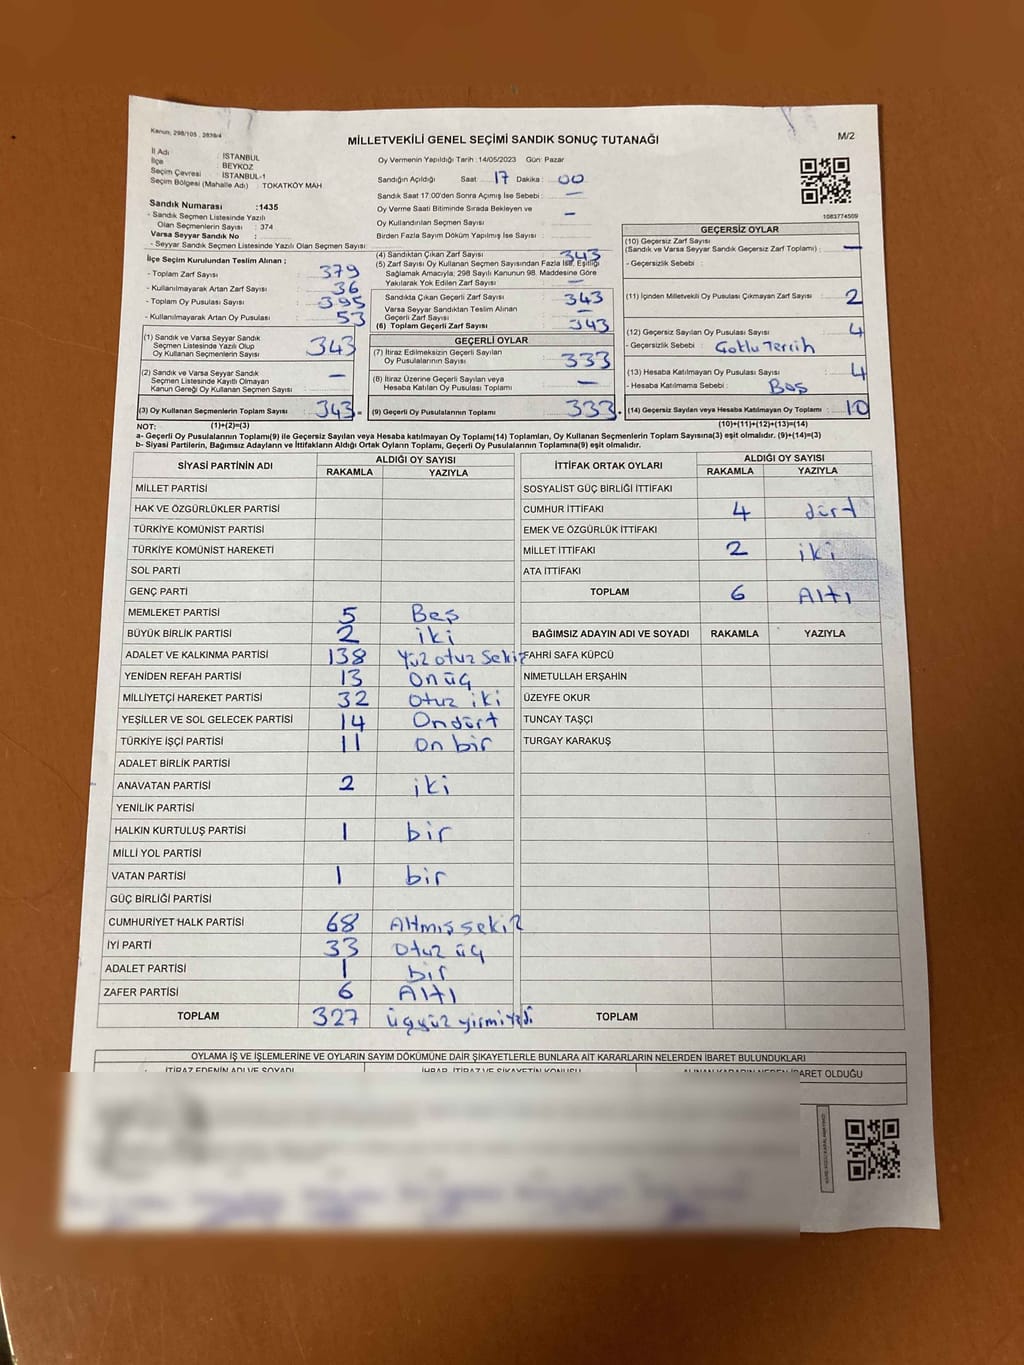 Kanun: 298/105 , 2839/4
MİLLETVEKİLİ GENEL SEÇİMİ SANDIK SONUÇ TUTANAĞI
M/2
İl Adı : İSTANBUL
İlçe : BEYKOZ
Seçim Çevresi : İSTANBUL-1
Seçim Bölgesi (Mahalle Adı) : TOKATKÖY MAH
Sandık Numarası :1435
- Sandık Seçmen Listesinde Yazılı
Olan Seçmenlerin Sayısı : 374
Varsa Seyyar Sandık No :
- Seyyar Sandık Seçmen Listesinde Yazılı Olan Seçmen Sayısı :
İlçe Seçim Kurulundan Teslim Alınan ;
- Toplam Zarf Sayısı : 379
- Kullanılmayarak Artan Zarf Sayısı : 36
- Toplam Oy Pusulası Sayısı : 395
- Kullanılmayarak Artan Oy Pusulası : 53
(1) Sandık ve Varsa Seyyar Sandık
Seçmen Listesinde Yazılı Olup
Oy Kullanan Seçmenlerin Sayısı : 343
(2) Sandık ve Varsa Seyyar Sandık
Seçmen Listesinde Kayıtlı Olmayan
Kanun Gereği Oy Kullanan Seçmen Sayısı : –
(3) Oy Kullanan Seçmenlerin Toplam Sayısı : 343
Oy Vermenin Yapıldığı Tarih :14/05/2023 Gün: Pazar
Sandığın Açıldığı Saat : 17 Dakika : 00
Sandık Saat 17:00'den Sonra Açımış İse Sebebi : –
Oy Verme Saati Bitiminde Sırada Bekleyen ve
Oy Kullandırılan Seçmen Sayısı : –
Birden Fazla Sayım Döküm Yapılmış İse Sayısı :
(4) Sandıktan Çıkan Zarf Sayısı : 343
(5) Zarf Sayısı Oy Kullanan Seçmen Sayısından Fazla İse, Eşitliği
Sağlamak Amacıyla; 298 Sayılı Kanunun 98. Maddesine Göre
Yakılarak Yok Edilen Zarf Sayısı : –
Sandıkta Çıkan Geçerli Zarf Sayısı : 343
Varsa Seyyar Sandıktan Teslim Alınan
Geçerli Zarf Sayısı : –
(6) Toplam Geçerli Zarf Sayısı : 343
GEÇERLİ OYLAR
(7) İtiraz Edilmeksizin Geçerli Sayılan
Oy Pusulalarının Sayısı : 333
(8) İtiraz Üzerine Geçerli Sayılan veya
Hesaba Katılan Oy Pusulası Toplamı : –
(9) Geçerli Oy Pusulalarının Toplamı : 333
1083774509
GEÇERSİZ OYLAR
(10) Geçersiz Zarf Sayısı
(Sandık ve Varsa Seyyar Sandık Geçersiz Zarf Toplamı) : –
- Geçersizlik Sebebi :
(11) İçinden Milletvekili Oy Pusulası Çıkmayan Zarf Sayısı : 2
(12) Geçersiz Sayılan Oy Pusulası Sayısı : 4
- Geçersizlik Sebebi : Çoklu Tercih
(13) Hesaba Katılmayan Oy Pusulası Sayısı : 4
- Hesaba Katılmama Sebebi : Boş
(14) Geçersiz Sayılan veya Hesaba Katılmayan Oy Toplamı : 10
NOT: (1)+(2)=(3) (10)+(11)+(12)+(13)=(14)
a- Geçerli Oy Pusulalarının Toplamı(9) ile Geçersiz Sayılan veya Hesaba katılmayan Oy Toplamı(14) Toplamları, Oy Kullanan Seçmenlerin Toplam Sayısına(3) eşit olmalıdır. (9)+(14)=(3)
b- Siyasi Partilerin, Bağımsız Adayların ve İttifakların Aldığı Ortak Oyların Toplamı, Geçerli Oy Pusulalarının Toplamına(9) eşit olmalıdır.
SİYASİ PARTİNİN ADI ALDIĞI OY SAYISI
RAKAMLA YAZIYLA
MİLLET PARTİSİ
HAK VE ÖZGÜRLÜKLER PARTİSİ
TÜRKİYE KOMÜNİST PARTİSİ
TÜRKİYE KOMÜNİST HAREKETİ
SOL PARTİ
GENÇ PARTİ
MEMLEKET PARTİSİ 5 Beş
BÜYÜK BİRLİK PARTİSİ 2 iki
ADALET VE KALKINMA PARTİSİ 138 Yüz otuz sekiz
YENİDEN REFAH PARTİSİ 13 On üç
MİLLİYETÇİ HAREKET PARTİSİ 32 Otuz iki
YEŞİLLER VE SOL GELECEK PARTİSİ 14 Ondört
TÜRKİYE İŞÇİ PARTİSİ 11 on bir
ADALET BİRLİK PARTİSİ
ANAVATAN PARTİSİ 2 iki
YENİLİK PARTİSİ
HALKIN KURTULUŞ PARTİSİ 1 bir
MİLLİ YOL PARTİSİ
VATAN PARTİSİ 1 bir
GÜÇ BİRLİĞİ PARTİSİ
CUMHURİYET HALK PARTİSİ 68 Altmış sekiz
İYİ PARTİ 33 Otuz üç
ADALET PARTİSİ 1 bir
ZAFER PARTİSİ 6 Altı
TOPLAM 327 üçyüz yirmi yedi
İTTİFAK ORTAK OYLARI ALDIĞI OY SAYISI
RAKAMLA YAZIYLA
SOSYALİST GÜÇ BİRLİĞİ İTTİFAKI
CUMHUR İTTİFAKI 4 dört
EMEK VE ÖZGÜRLÜK İTTİFAKI
MİLLET İTTİFAKI 2 iki
ATA İTTİFAKI
TOPLAM 6 Altı
BAĞIMSIZ ADAYIN ADI VE SOYADI RAKAMLA YAZIYLA
FAHRİ SAFA KÜPCÜ
NİMETULLAH ERŞAHİN
ÜZEYFE OKUR
TUNCAY TAŞÇI
TURGAY KARAKUŞ
TOPLAM
OYLAMA İŞ VE İŞLEMLERİNE VE OYLARIN SAYIM DÖKÜMÜNE DAİR ŞİKAYETLERLE BUNLARA AİT KARARLARIN NELERDEN İBARET BULUNDUKLARI
İTİRAZ EDENİN ADI VE SOYADI İHBAR, İTİRAZ VE ŞİKAYETİN KONUSU ALINAN KARARIN NEDEN İBARET OLDUĞU